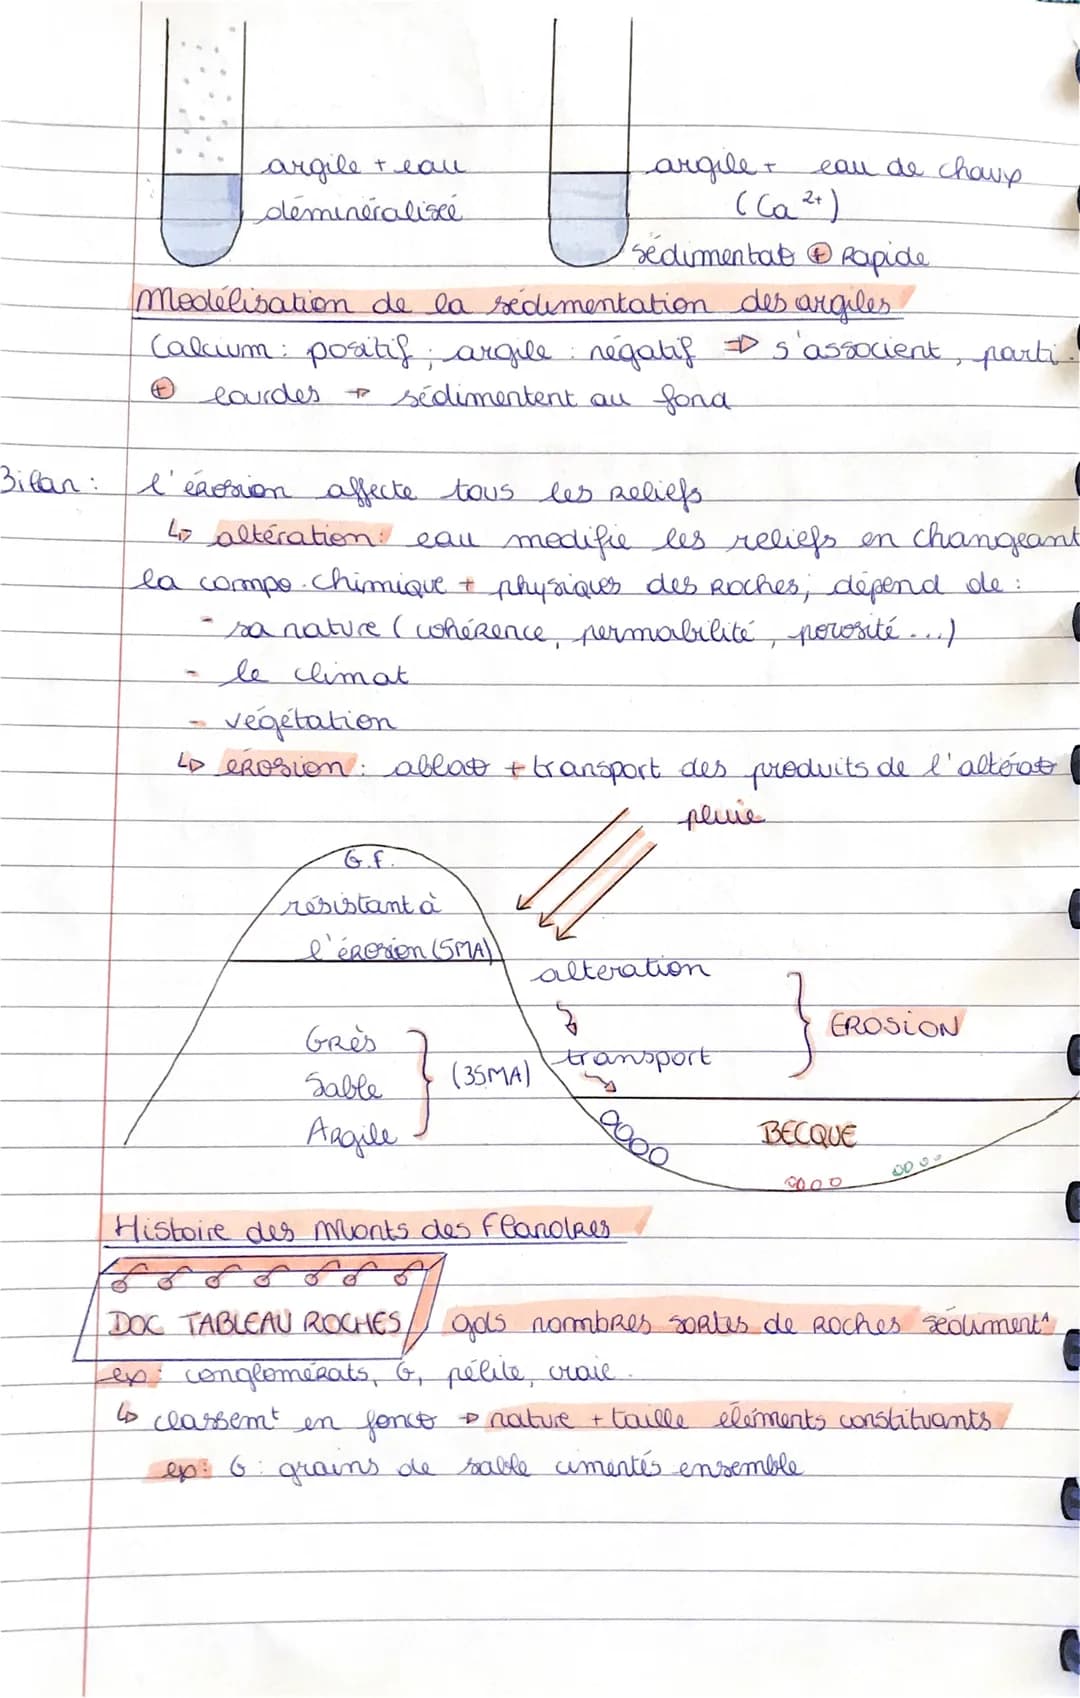 argile + eau
déminéralisée
argile + eau de chaux
(Ca 2+)
sédimentat° ⊕ Rapide
Modélisation de la sédimentation des argiles
Calcium : positif ; argile : négatif => s'associent, parti.
⊕ lourdes → sédimentent au fond
Bilan : l'érosion affecte tous les reliefs
↳ altération : eau modifie les reliefs en changeant
la compo. chimique + physiques des Roches ; dépend de :
- sa nature (cohérence, permabilité, porosité ...)
- le climat
- végétation
↳ érosion : ablat° + transport des produits de l'altérat°
pluie
G.F.
résistant à
l'érosion (5MA)
alteration
EROSION
Grès
Sable
Argile
(35MA)
transport
BECQUE
Histoire des Monts des Flandres
DOC TABLEAU ROCHES
gds nombres sortes de Roches sédiment^
ex : conglomérats, G, pélite, craie.
↳ classemt en fonct° → nature + taille éléments constituants
ex : G : grains de sable cimentés ensemble